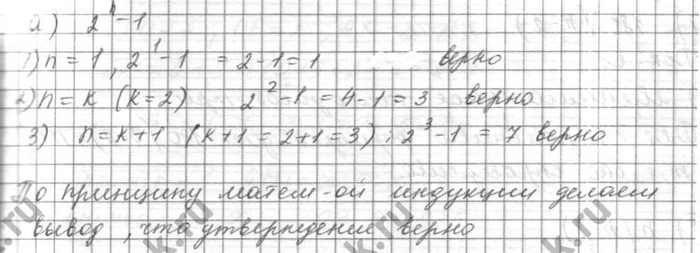 а) 2ⁿ-1
1) n = 1, 2¹-1 = 2-1 = 1 верно
2) n = k (k=2) 2²-1 = 4-1 = 3 верно
3) n = k+1 (k+1 = 2+1 = 3); 2³-1 = 7 верно
По принципу матем-ой индукции делаем
вывод, что утверждение верно